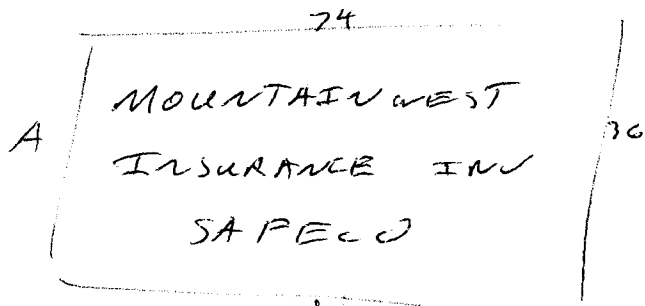 74
MOUNTAINWEST
A
INSURANCE INV
SAFECO